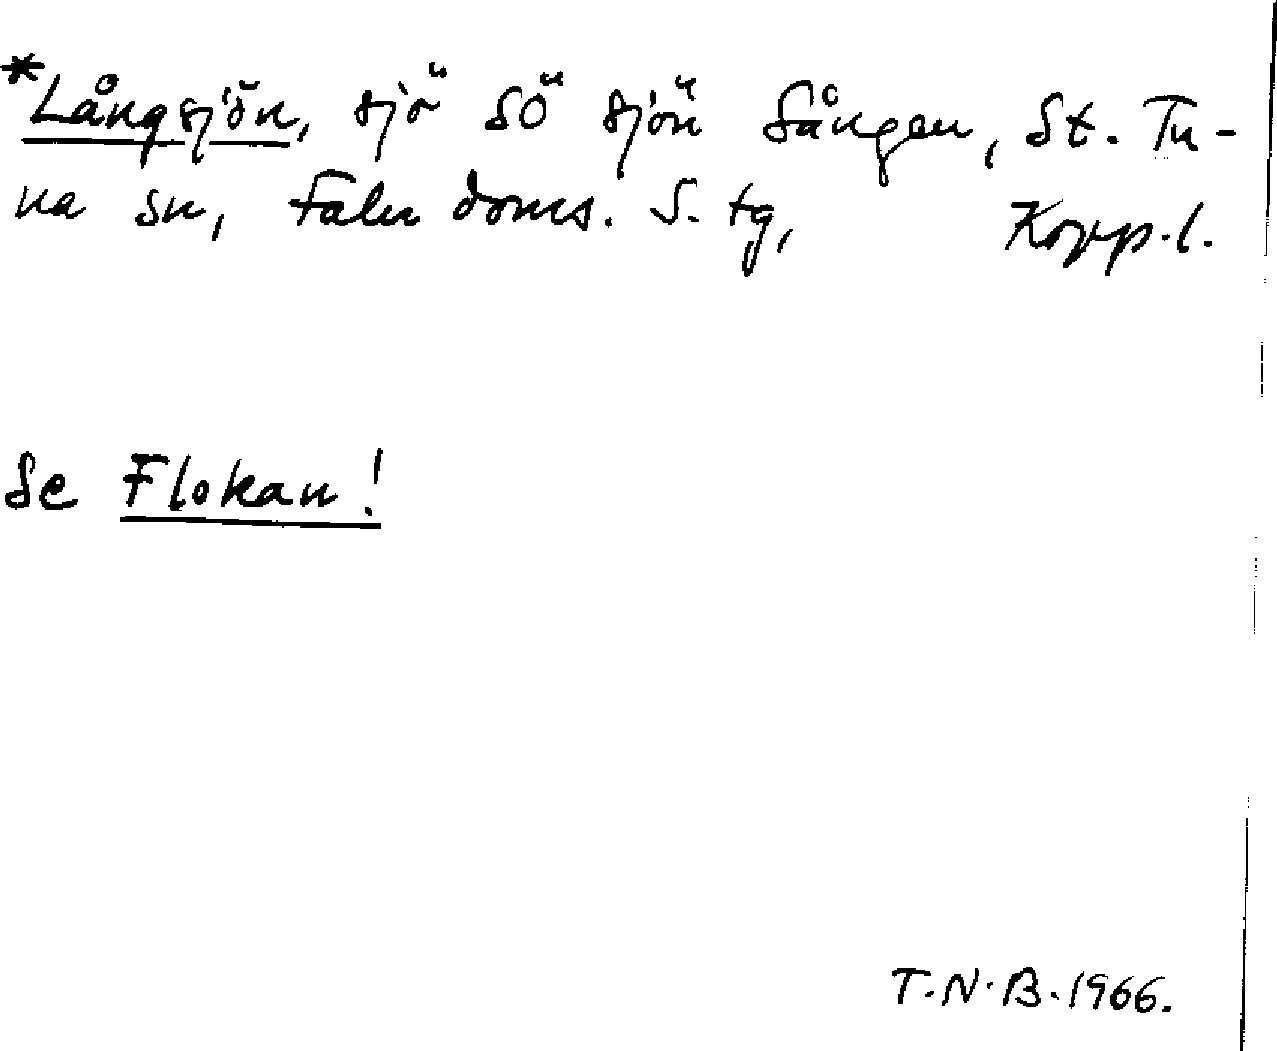 *Långsjön, sjö SÖ sjön Sången, St. Tu-
na sn, Falu doms. S. tg, Kopp.l.
Se Flokan!
T.N.B. 1966.